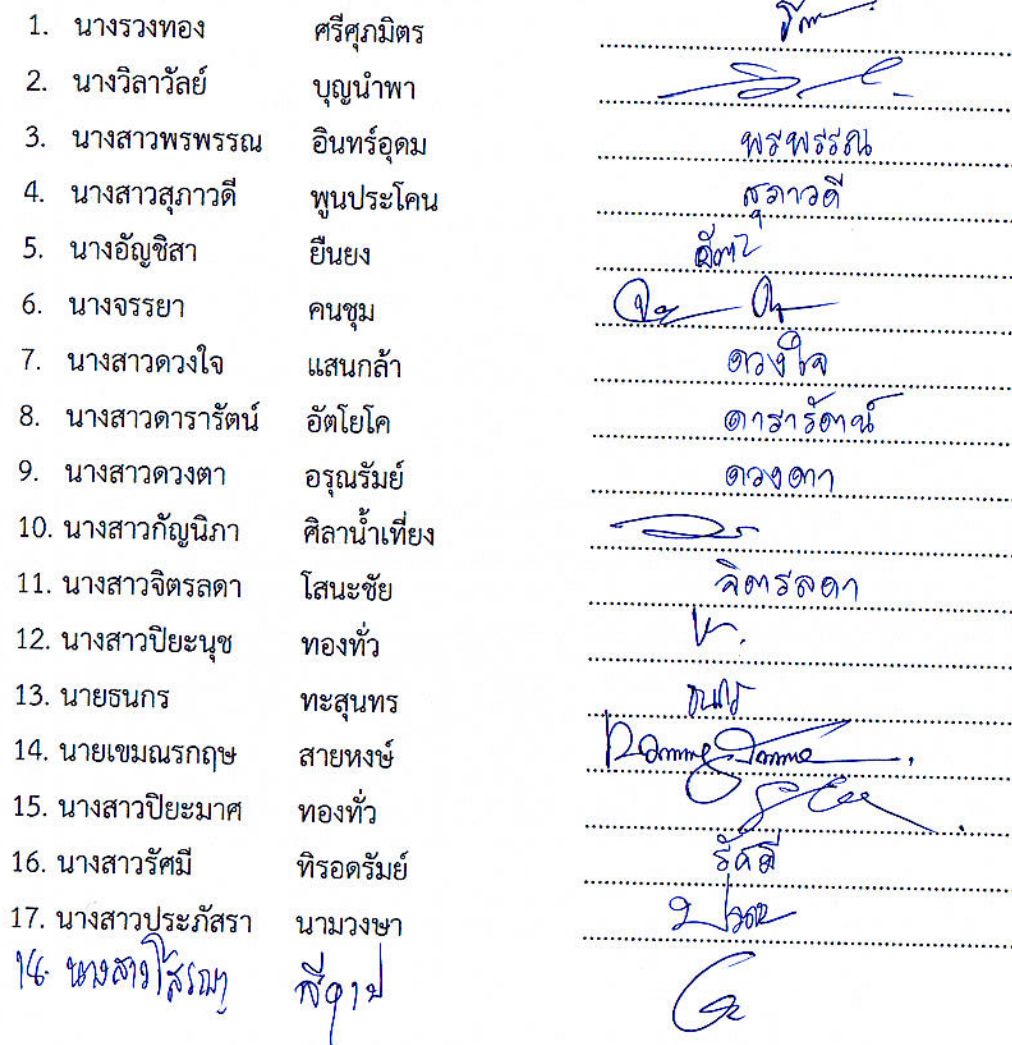 1. นางรวงทอง ศรีศุภมิตร
2. นางวิลาวัลย์ บุญนำพา
3. นางสาวพรพรรณ อินทร์อุดม พรพรรณ
4. นางสาวสุภาวดี พูนประโคน สุภาวดี
5. นางอัญชิสา ยืนยง
6. นางจรรยา คนชุม
7. นางสาวดวงใจ แสนกล้า ดวงใจ
8. นางสาวดารารัตน์ อัตโยโค ดารารัตน์
9. นางสาวดวงตา อรุณรัมย์ ดวงตา
10. นางสาวกัญนิภา ศิลาน้ำเที่ยง
11. นางสาวจิตรลดา โสนะชัย จิตรลดา
12. นางสาวปิยะนุช ทองทั่ว
13. นายธนกร ทะสุนทร ธนกร
14. นายเขมณรกฤษ สายหงษ์
15. นางสาวปิยะมาศ ทองทั่ว
16. นางสาวรัศมี ทิรอดรัมย์ รัศมี
17. นางสาวประภัสรา นามวงษา
18. นางสาว